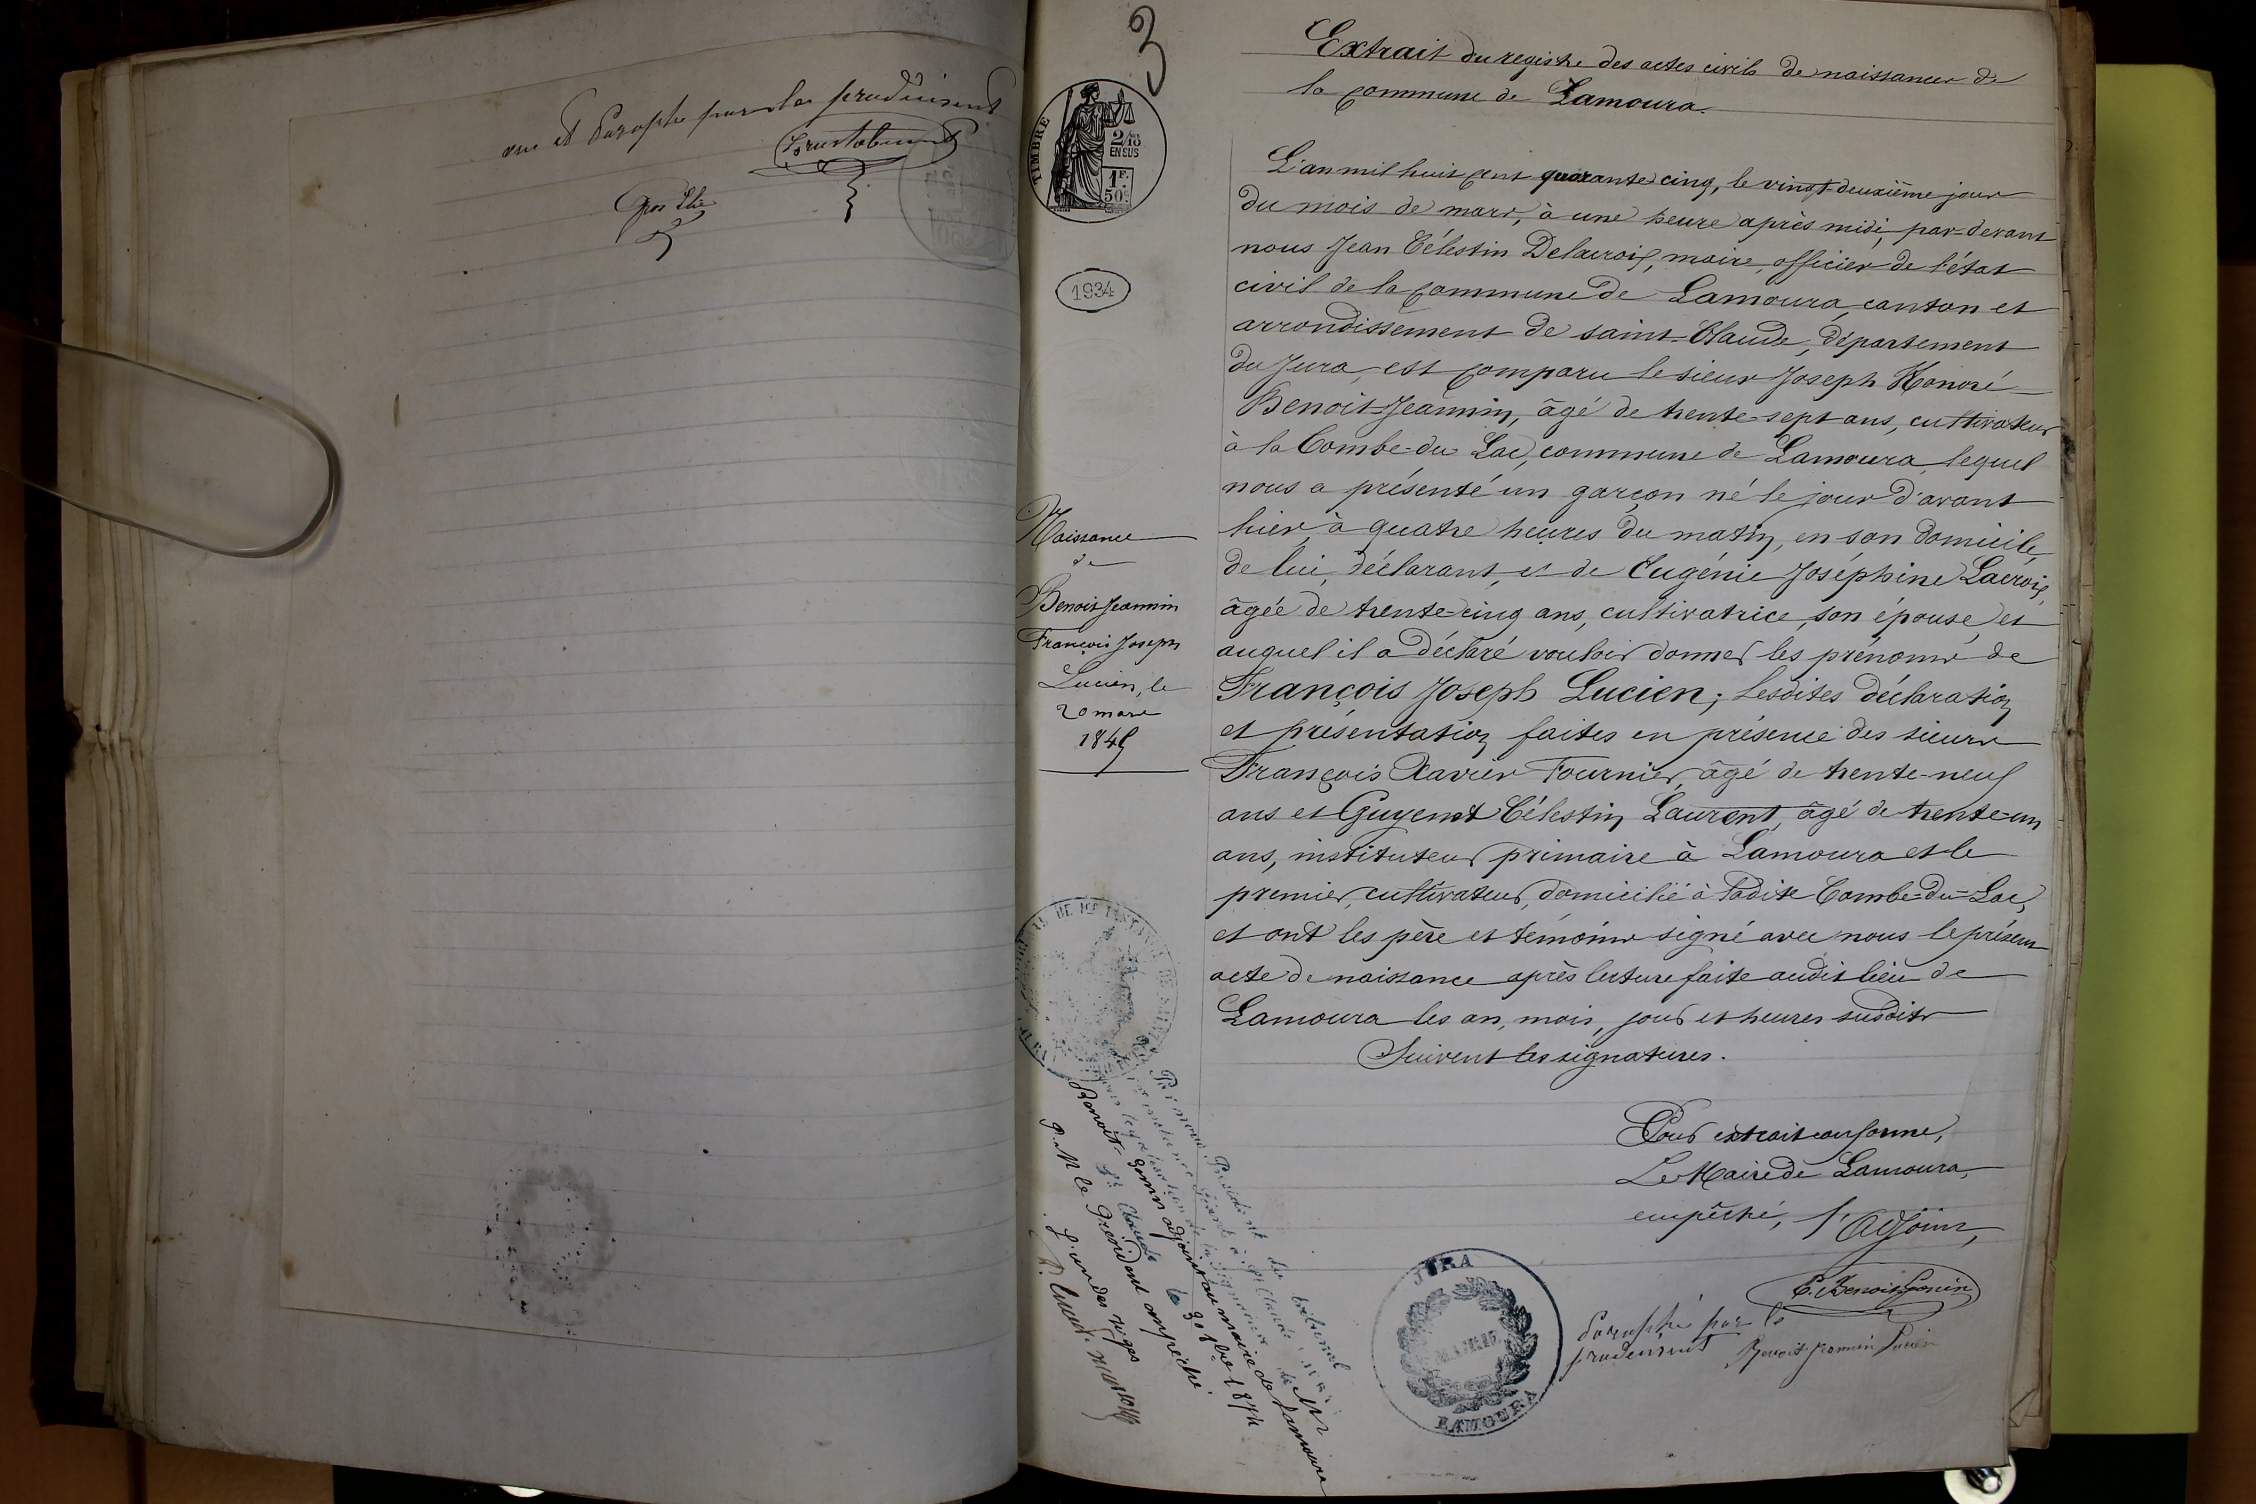 vu et paraphé par les prudiisent
Gros Elie
3
TIMBRE
2/10
EN SUS
1F.
50c.
1934
Extrait du registre des actes civils de naissances de
la commune de Lamoura.
L'an mil huit cent quarante cinq, le vingt-deuxième jour
du mois de mars, à une heure après midi, par-devant
nous Jean Célestin Delacroix, maire, officier de l'état
civil de la commune de Lamoura, canton et
arrondissement de saint-Claude, département
du Jura, est comparu le sieur Joseph Honoré
Benoit-Jeannin, âgé de trente-sept ans, cultivateur
à la Combe-du Lac, commune de Lamoura, lequel
nous a présenté un garçon né le jour d'avant
hier, à quatre heures du matin, en son domicile,
de lui, déclarant, et de Eugénie Joséphine Lacroix,
âgée de trente-cinq ans, cultivatrice, son épouse, et
auquel il a déclaré vouloir donner les prénoms de
François Joseph Lucien; lesdites déclaration
et présentation faites en présence des sieurs
François Xavier Fournier, âgé de trente-neuf
ans et Guyenot Célestin Laurent, âgé de trente-un
ans, instituteur primaire à Lamoura et le
premier, cultivateur, domicilié à ladite Combe-du-Lac,
et ont les père et témoins signé avec nous le présent
acte de naissance après lecture faite audit lieu de
Lamoura les an, mois, jour et heures susdits
Suivent les signatures.
Naissance
de
Benoit Jeannin
François Joseph
Lucien, le
20 mars
1845
Pour extrait conforme,
Le Maire de Lamoura,
empêché, l'Adjoint,
E. Benoit Jeannin
Paraphé par le
Benoit Jeannin Lucien
JURA
LAMOURA
Par nous, Président du tribunal
de 1re instance séant à St Claude (Jura)
pour légalisation de la signature de Mr
Benoit Jannin adjoint au maire de Lamoura
St Claude le 30 8bre 1874
P. M. le Président empêché
L'un des juges